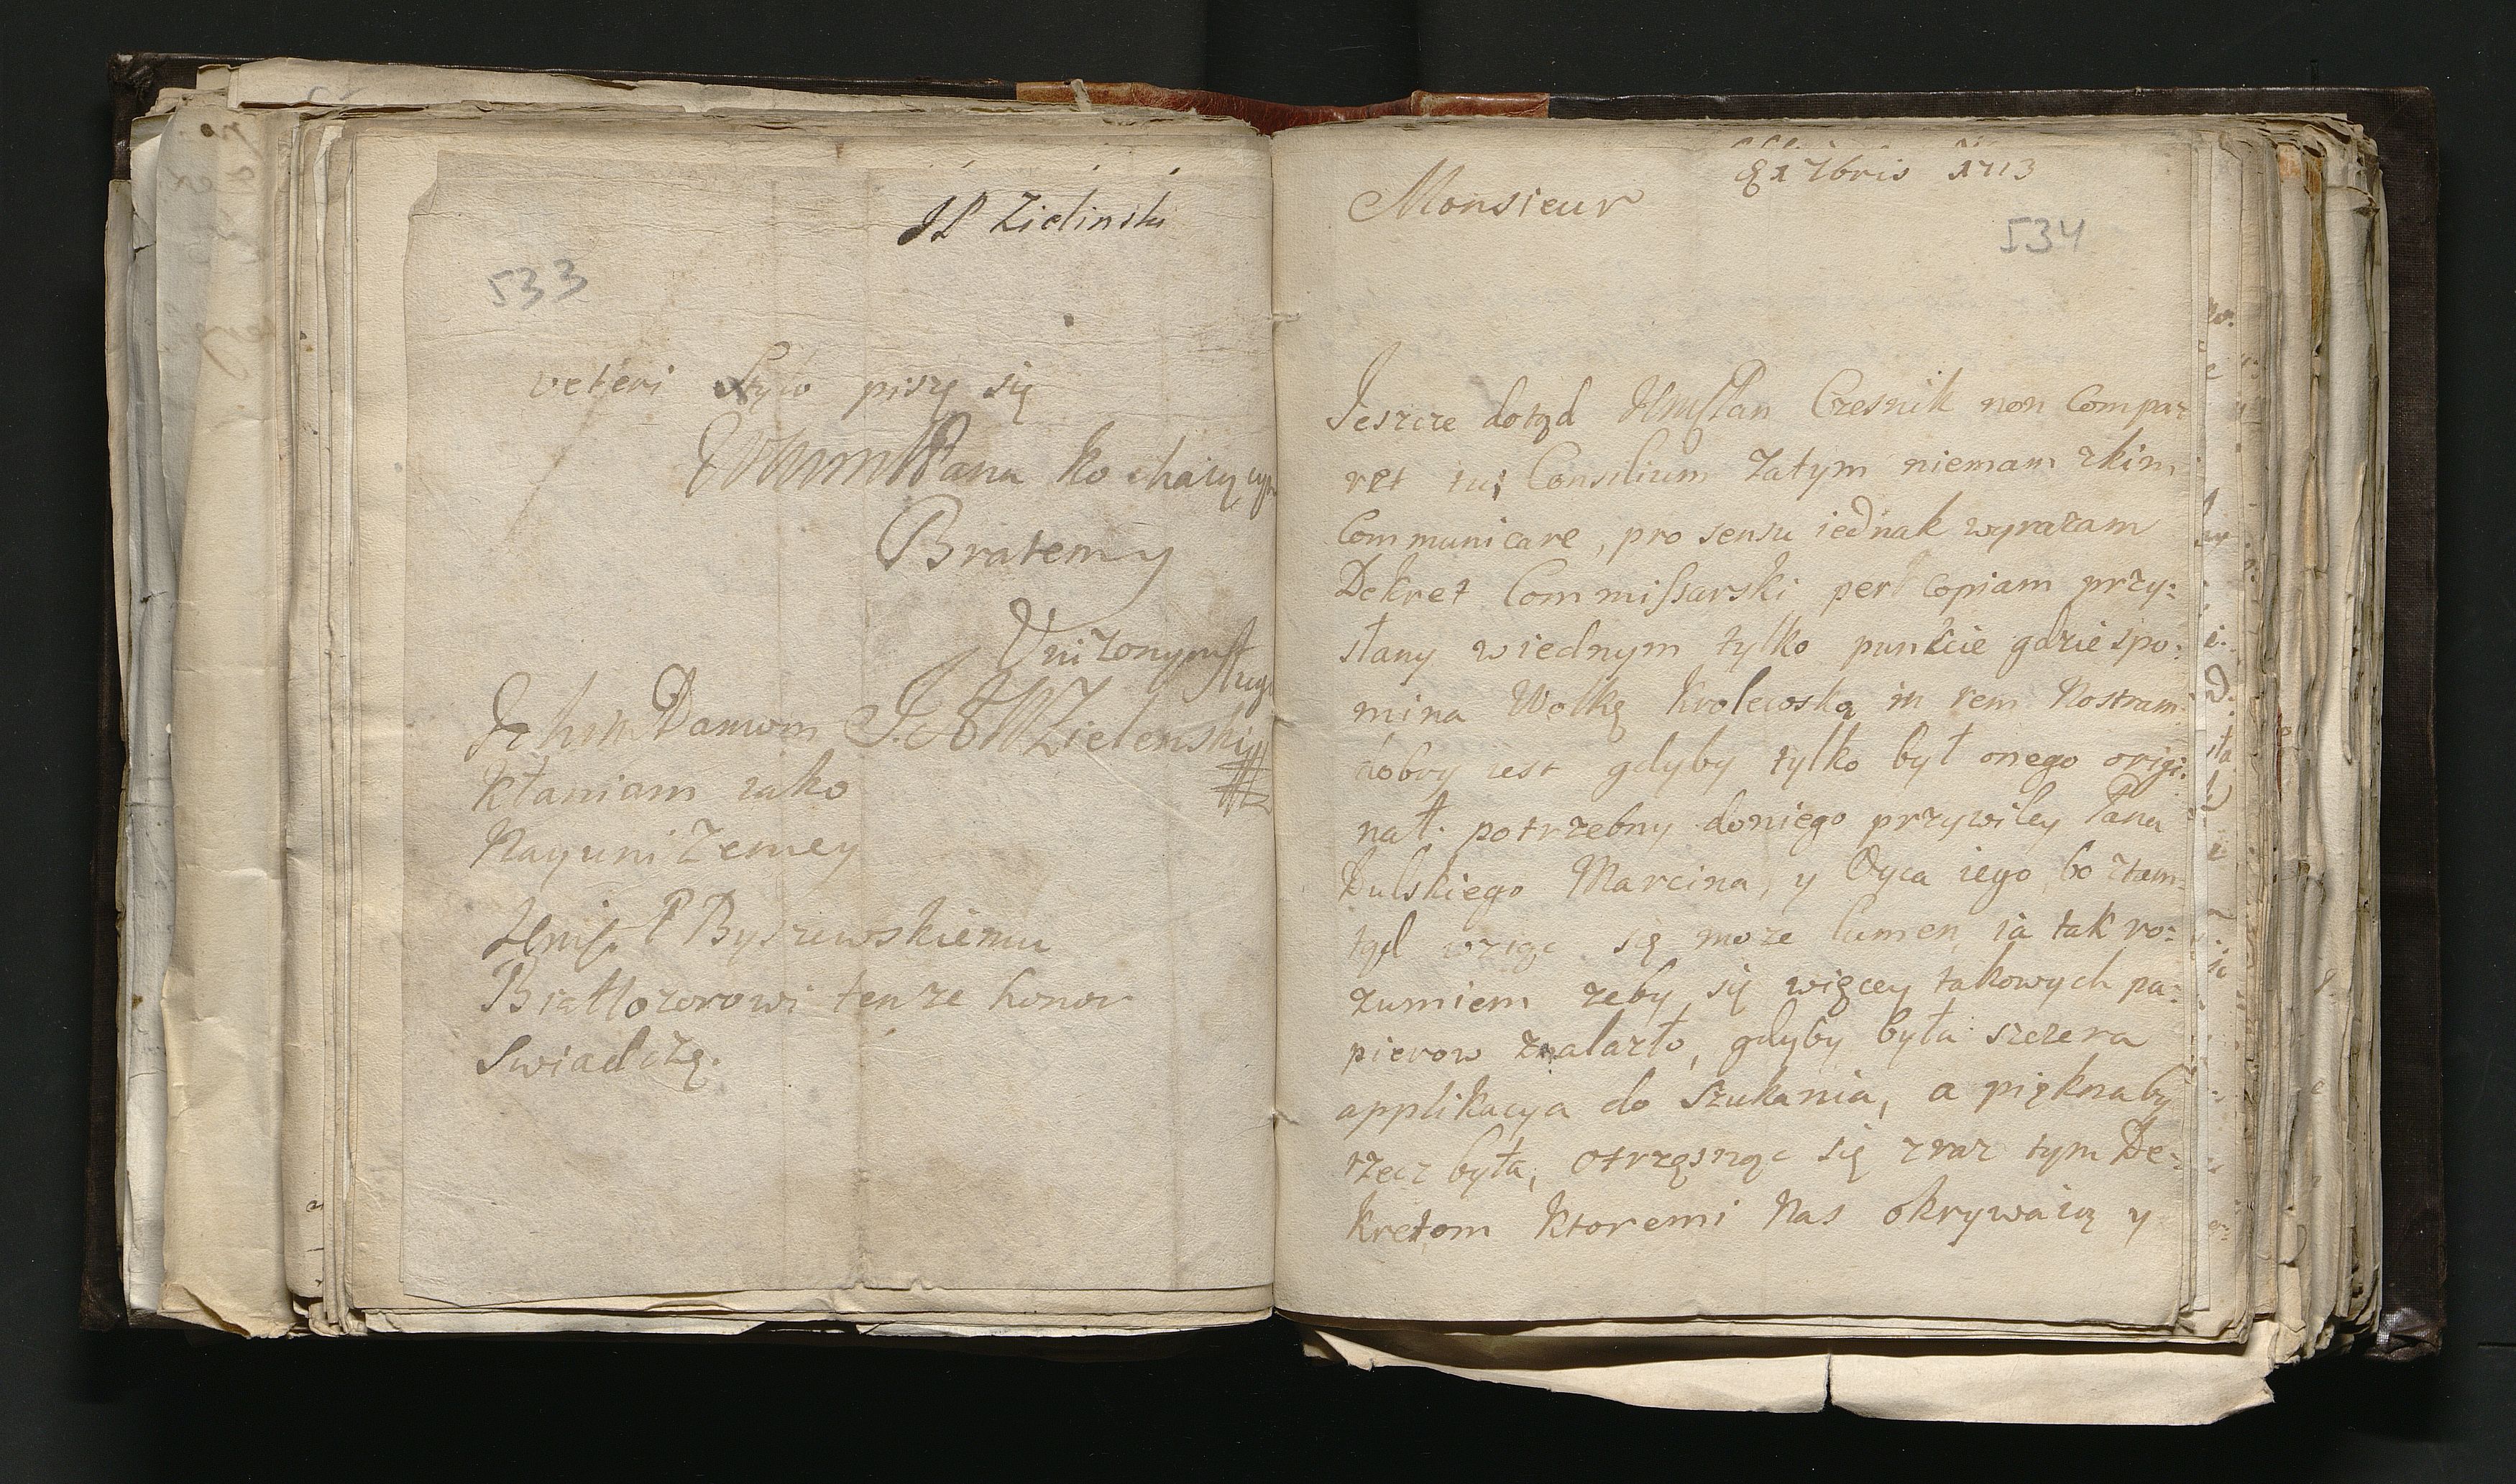 JP Zielinski
533
veteri Stylo piszę się
Pana kochaiący
Bratem y
Vniżonym sług
Ich mm Panwm J. A W Zielenski
Kłaniam iako
Nayuniżeniey
Jmśc P Byszewskiemu
Białłozorowi tenże honor
Swiadczę.
21 7bris 1713
Monsieur
534
Jeszcze dotąd JmsPan Czesnik non Compar
ret tui Consilium zatym niemam zkim
Communicare, pro sensu iednak wyrazam
Dekret Commissarski per Copiam przy:
słany wiednym tylko punkcie gdzie spo:
mina Wolkę Krolewską in rem Nostram
dobry iest gdyby tylko był onego origi:
nał. potrzebny doniego przywiley Pana
Dulskiego Marcina, y Oyca iego bo ztam
tąd wziąc się moze lumen, ia tak ro:
zumiem zeby się więcey takowych pa:
pierow znalazło, gdyby była szczera
applikacya do szukania, a piękna by
rzecz była, otrząsnąc się zraz tym De-
kretom Ktoremi Nas okrywaią y